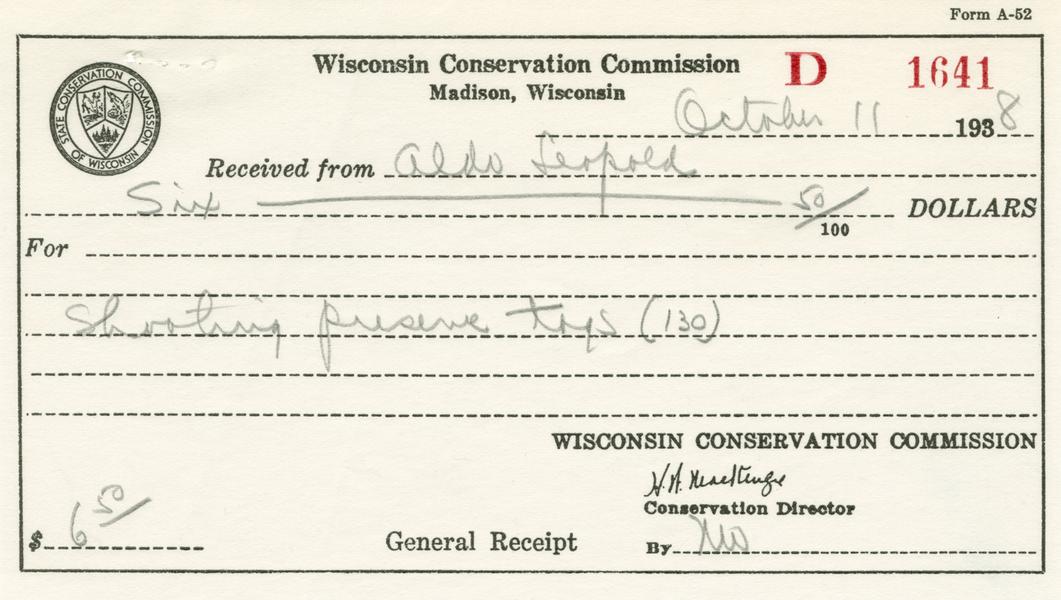 Form A-52
Wisconsin Conservation Commission D 1641
Madison, Wisconsin
STATE CONSERVATION COMMISSION OF WISCONSIN
October 11 1938
Received from Aldo Leopold
Six 50/100 DOLLARS
For
Shooting preserve tags (130)
WISCONSIN CONSERVATION COMMISSION
H. W. MacKenzie
Conservation Director
$ 6 50/ General Receipt By